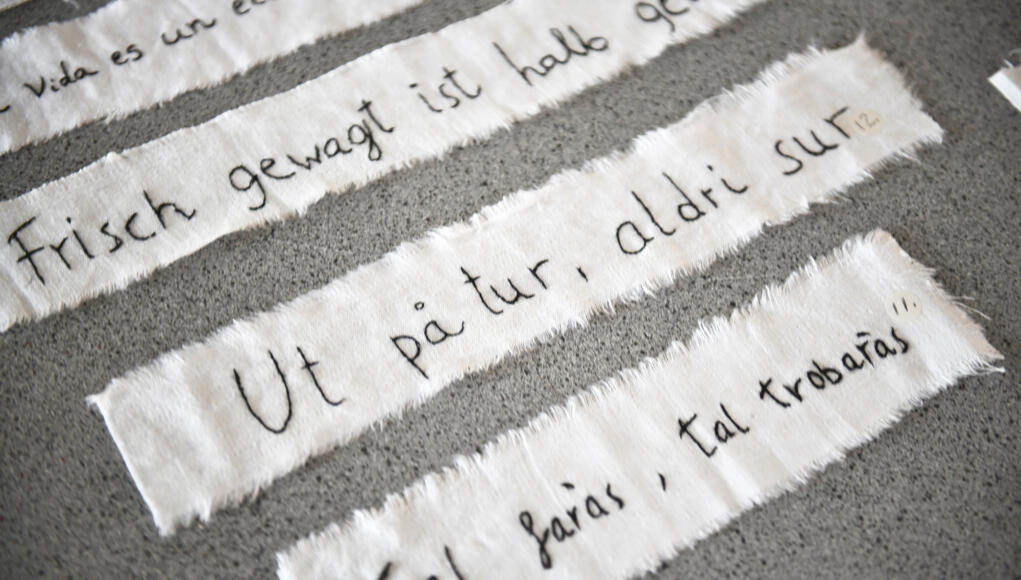 vida es un
Frisch gewagt ist halb
Ut på tur, aldri sur
12.
11.
faràs, tal trobaràs